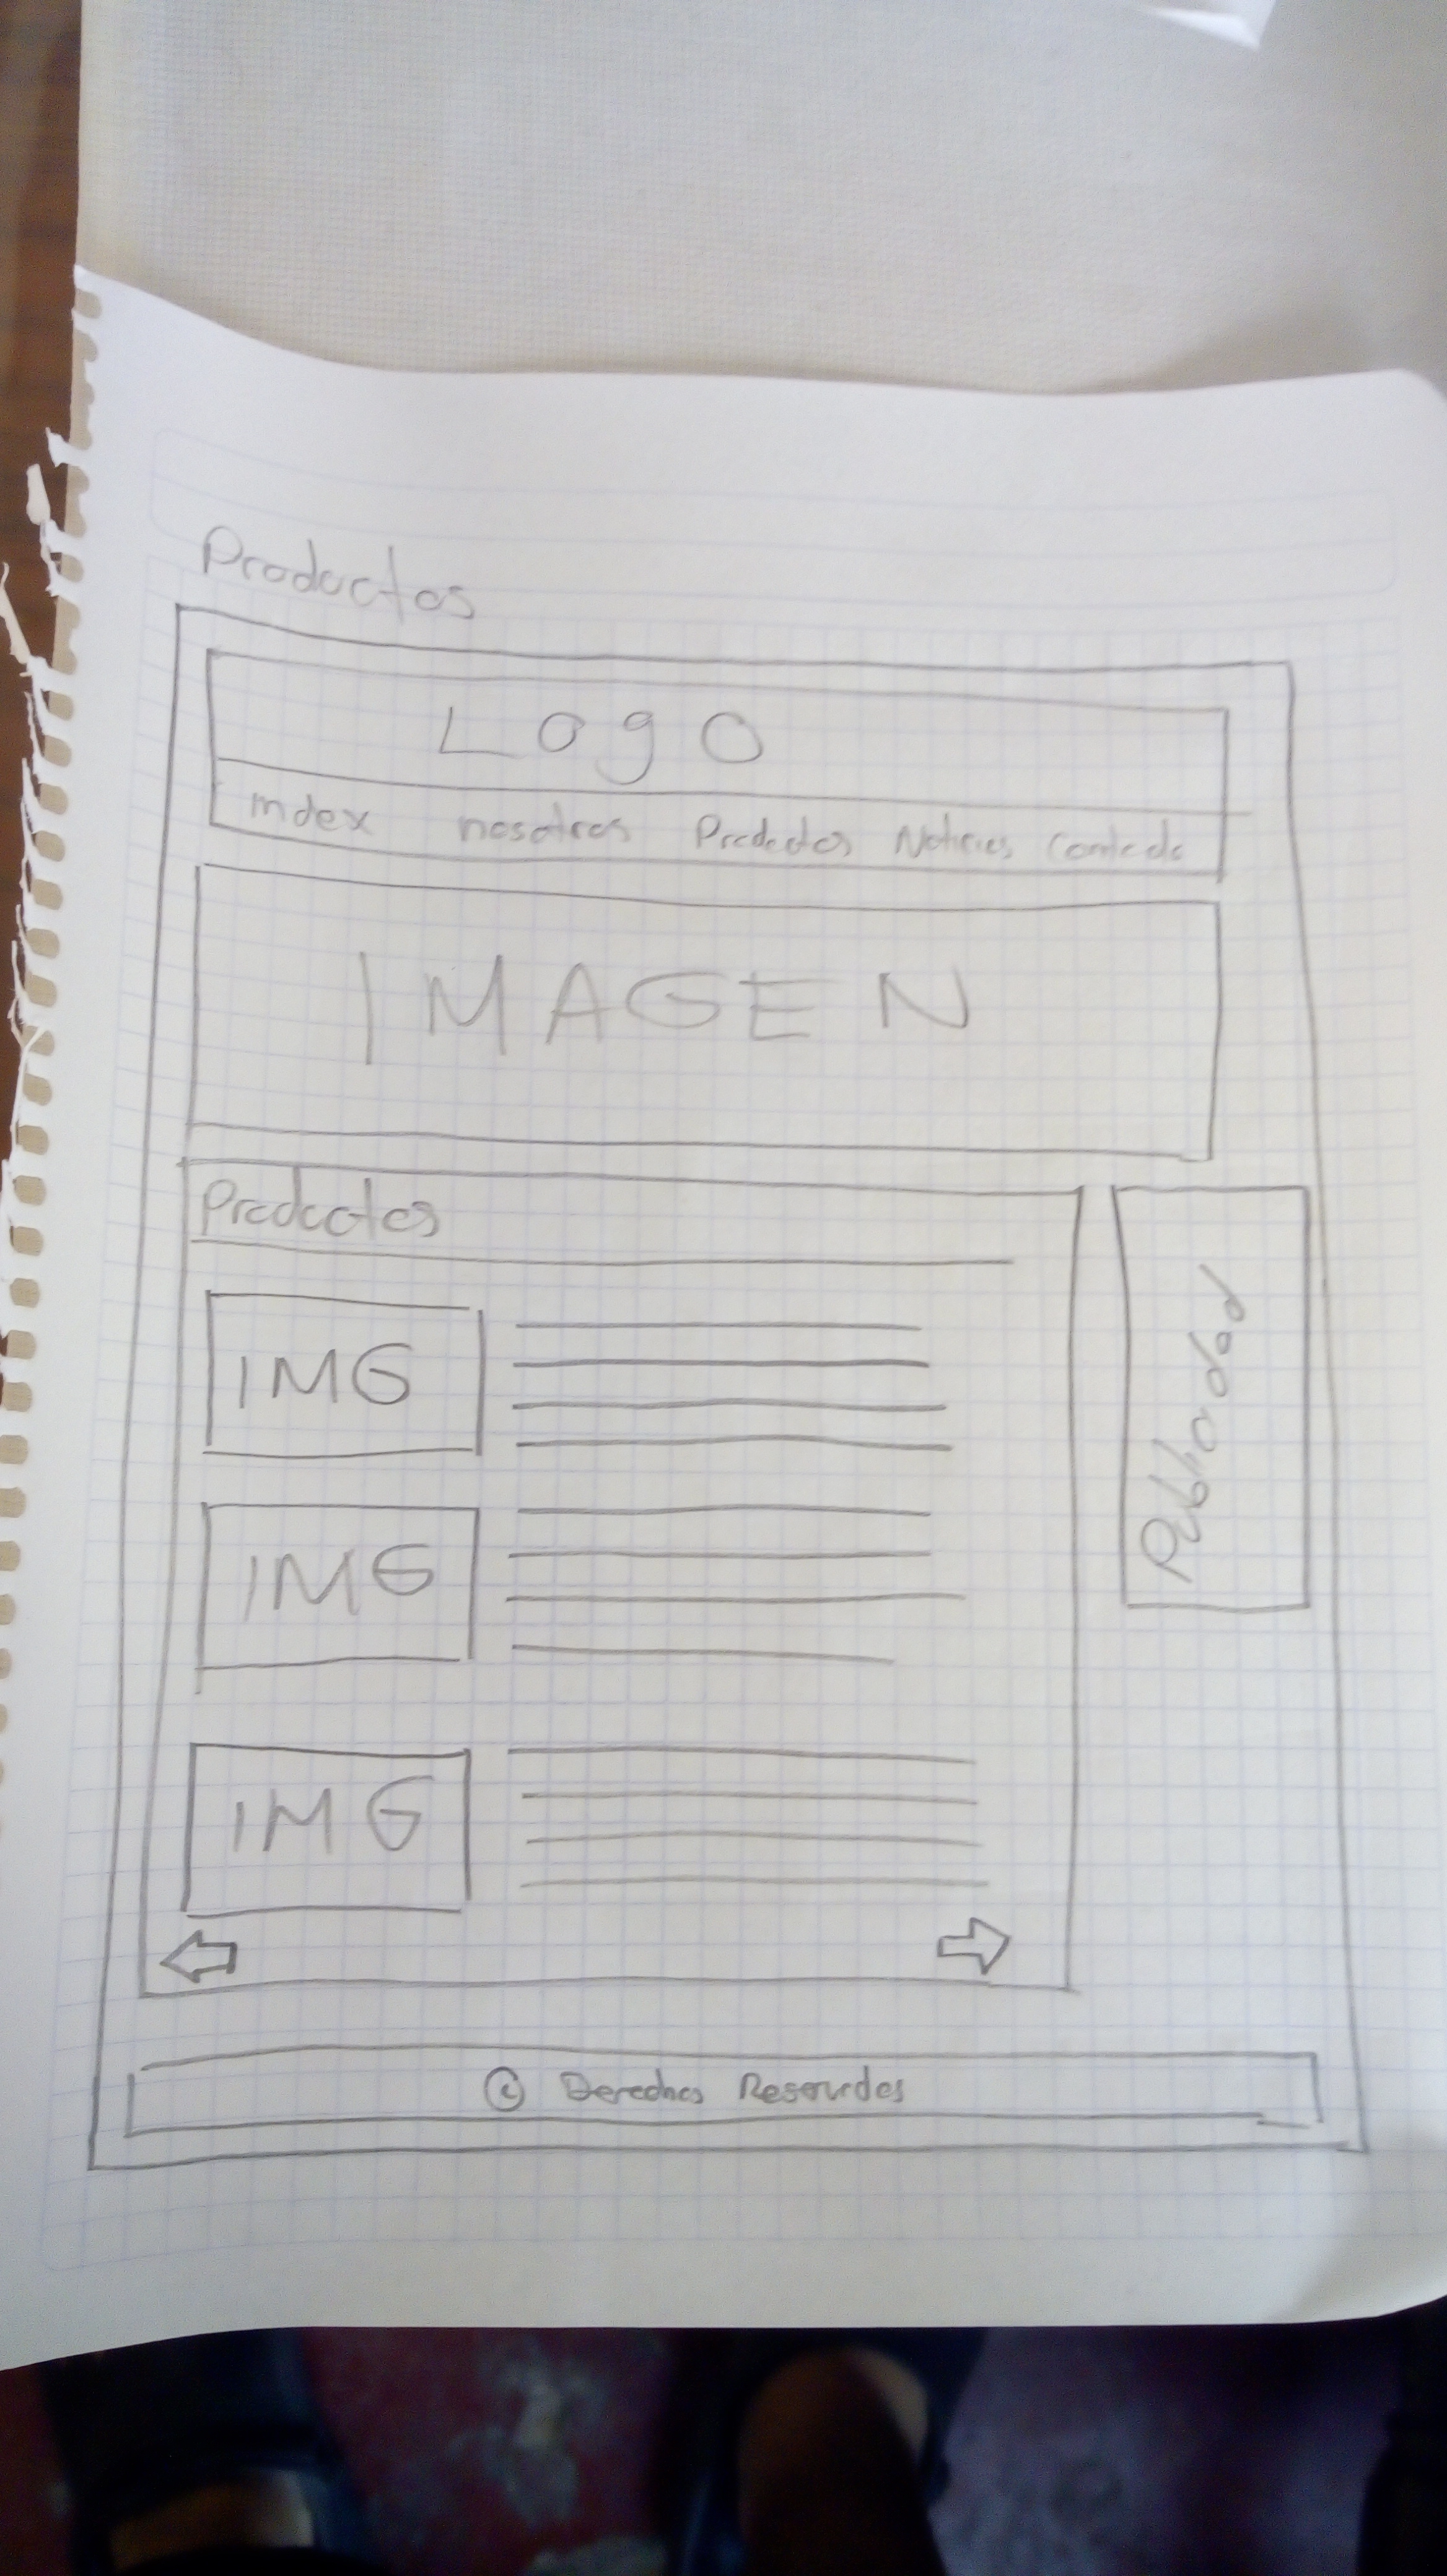 Productos
Logo
Index nosotros Productos Noticias Contacto
IMAGEN
Productos
IMG
Publicidad
IMG
IMG
© Derechos Reservados